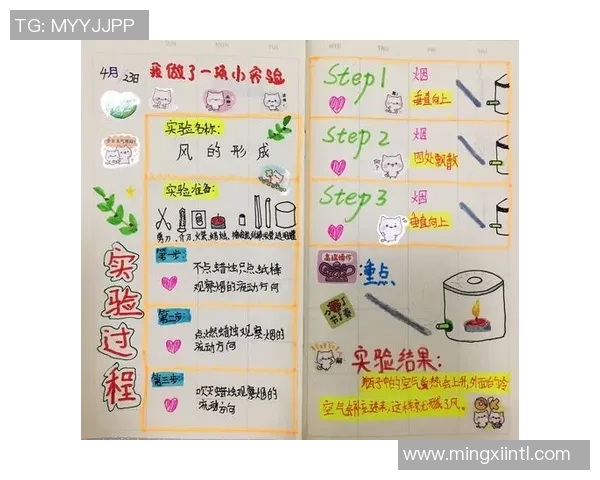 TG: MYYJJPP
4月23日
我做了一项小实验
实验名称:
风的形成
实验准备:
剪刀、
实验过程
第一步:
不点蜡烛只点纸棒
观察烟的流动方向
第二步:
点燃蜡烛观察烟的
流动方向
第三步:
吹灭蜡烛观察烟的
流动方向
Step 1
烟
垂直向上
Step 2
烟
四处飘散
Step 3
烟
垂直向上
高端操作
重点
实验结果:
瓶子中的空气受热会上升,外面的冷
空气
这样就形成了风。
OK
www.mingxiintl.com